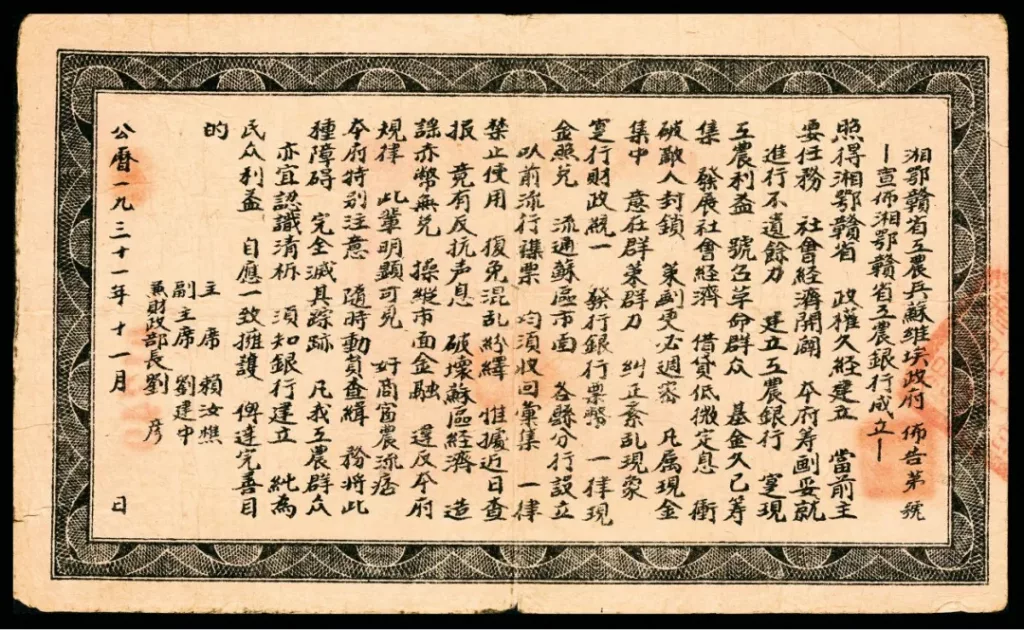 湘鄂贛省工農兵蘇維埃政府 佈告第 號
—宣佈湘鄂贛省工農銀行成立—
照得湘鄂贛省 政權久經建立 當前主
要任務 社會經濟開闢 本府籌劃妥就
進行不遺餘力 建立工農銀行 寔現
工農利益 號召革命群众 基金久已筹
集 發展社會經濟 借貸低微定息 衝
破敵人封鎖 策劃更必週密 凡属現金
集中 意在群策群力 糾正紊乱現象
寔行財政統一 發行銀行票幣 一律現
金照兑 流通蘇區市面 各縣分行設立
以前流行襍票 均須收回彙集 一律
禁止使用 復免混乱紛繹 惟據近日查
报 竟有反抗声息 破壞蘇區經濟 造
謠赤幣無兑 操縱市面金融 違反本府
規律 此輩明顯可見 奸商富農流痞
本府特别注意 隨時動員查緝 務將此
種障碍 完全滅其踪跡 凡我工農群众
亦宜認識清析 須知銀行建立 純為
民众利益 自應一致擁護 俾達完善目
的
主席 賴汝樵
副主席 劉建中
兼財政部長劉彦
公曆一九三十一年十一月 日